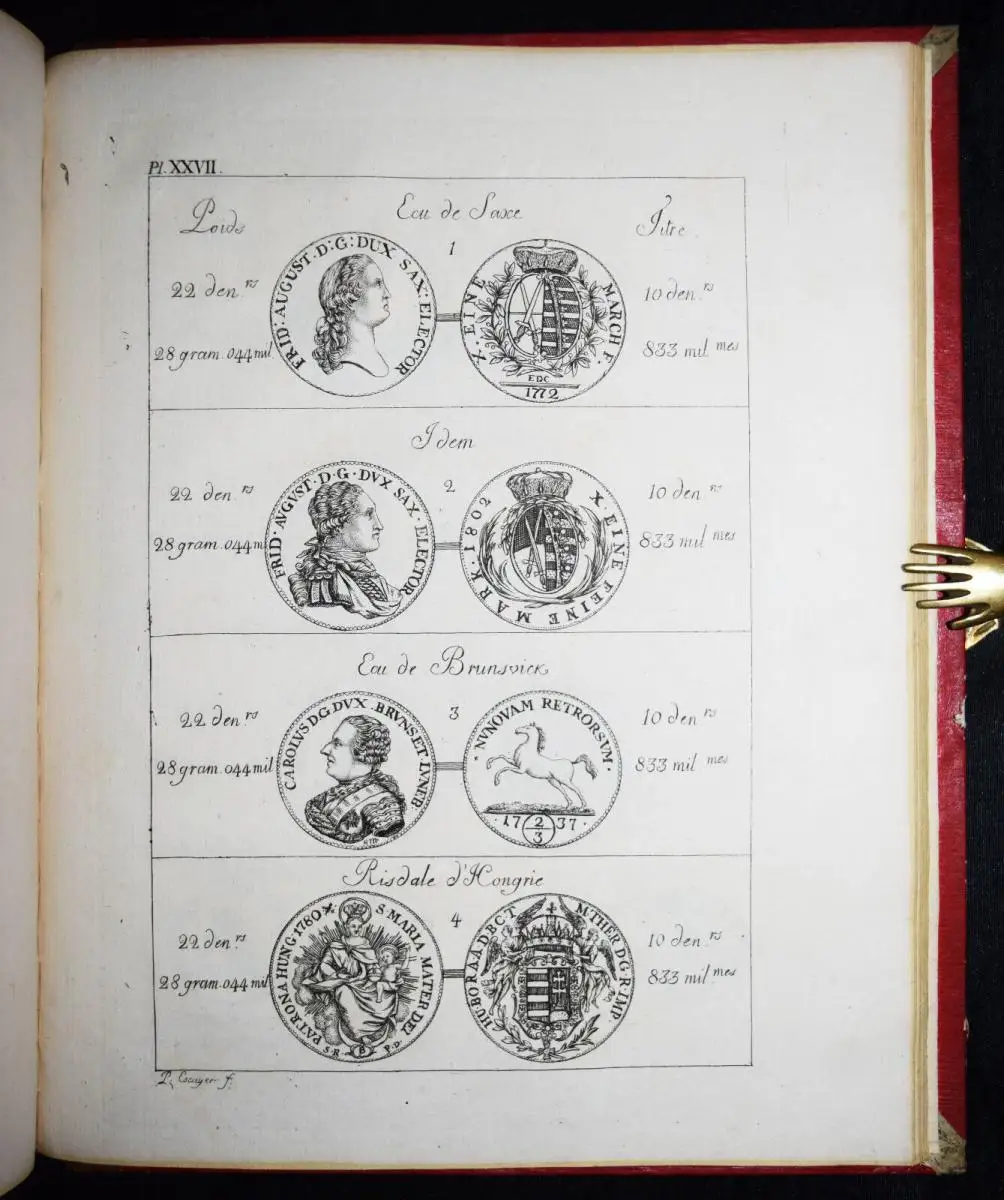 Pl. XXVII.
Ecu de Saxe
Poids
Titre.
1
22 den.rs
10 den.rs
28 gram. 044 mil
833 mil mes
FRID: AUGUST. D: G: DUX SAX: ELECTOR
X. EINE MARCH F.
EDC
1772
Idem
2
22 den.rs
10 den rs
28 gram. 044 m
833 mil mes
FRID· AVGVST· D· G· DVX SAX· ELECTOR
X· EINE FEINE MARK· 1802
Ecu de Brunsvick
3
22 den rs
10 den rs
28 gram. 044 mil
833 mil mes
CAROLVS D.G DVX BRVNS ET LVNEB:
· NUNQVAM RETRORSVM ·
· 17 2/3 37 ·
Risdale d'Hongrie
4
22 den.rs
10 den.rs
28 gram. 044 mil
833 mil. mes
S. MARIA MATER DEI PATRONA HUNG. 1780 X
S. R B P. D
M. THER. D. G. R. IMP. HU. BO. R. A. A. D. B. C. T.